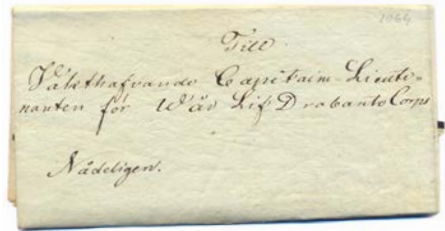 1064
Till
Wälethafvande Capitaine-Lieute=
nanten för Wår Lif Drabants Corps
Nådeligen.